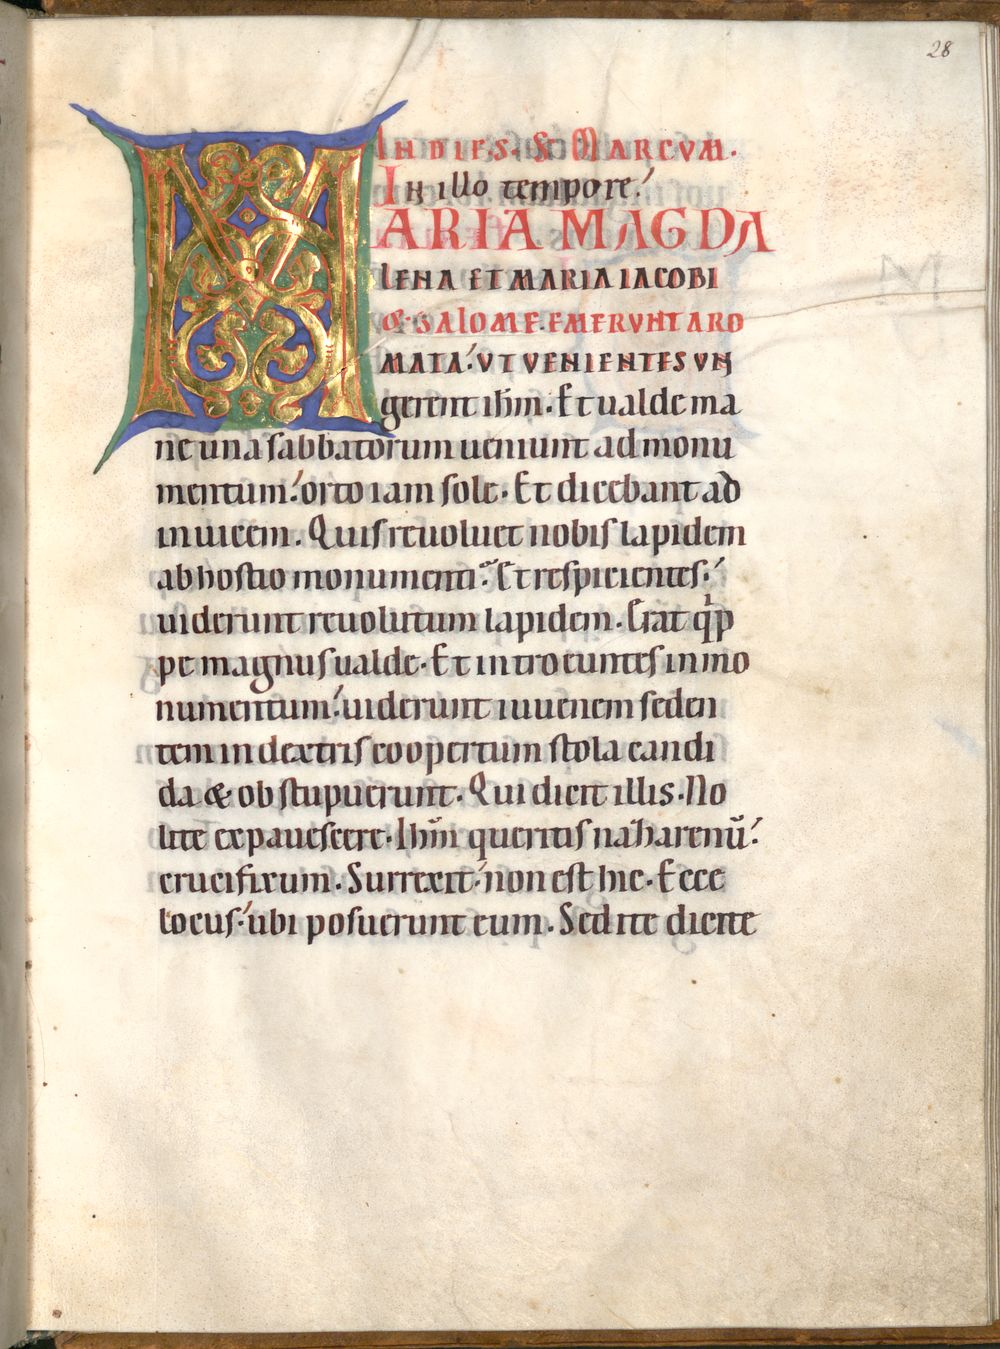 28
IN DIE S. S. MARCVM.
In illo tempore.
MARIA MAGDA
LENA ET MARIA IACOBI
& SALOME. EMERVNT ARO
MATA. VT VENIENTES VN
gerent ihm. Et ualde ma
ne una sabbatorum ueniunt ad monu
mentum. orto iam sole. Et dicebant ad
inuicem. Quis reuoluet nobis lapidem
ab hostio monumenti. Et respicientes.
uiderunt reuolutum lapidem. Erat qͥp
pe magnus ualde. Et introeuntes in mo
numentum. uiderunt iuuenem seden
tem in dextris coopertum stola candi
da & obstupuerunt. Qui dicit illis. No
lite expauescere. Ihm̄ queritis nazarenū.
crucifixum. Surrexit. non est hic. Ecce
locus. ubi posuerunt eum. Sed ite dicite